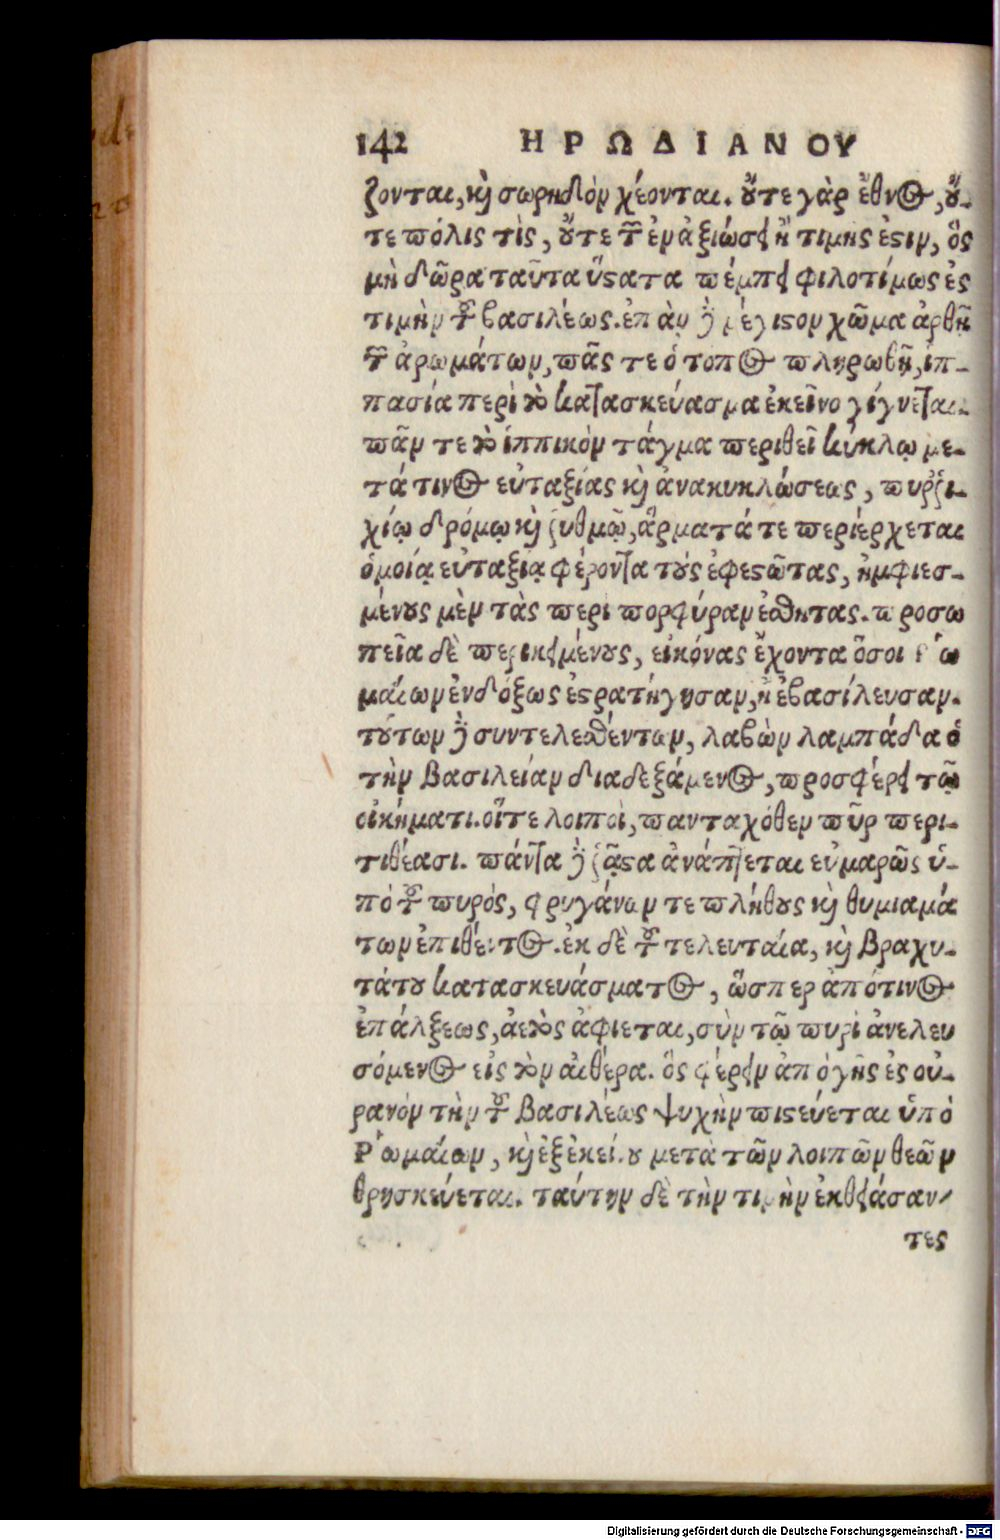 142 ΗΡΩΔΙΑΝΟΥ
ζονται, καὶ σωρηδὸν χέονται. οὔτε γὰρ ἔθνος, οὔ-
τε πόλις τὶς, οὔτε τῶν ἐν ἀξιώσει ἢ τιμῆς ἐστιν, ὃς
μὴ δῶρα ταῦτα ὕστατα πέμπει φιλοτίμως ἐς
τιμὴν τοῦ βασιλέως. ἐπὰν δὲ μέγιστον χῶμα ἀρθῇ
τῶν ἀρωμάτων, πᾶς τε ὁ τοπος πληρωθῇ, ἱπ-
πασία περὶ τὸ κατασκεύασμα ἐκεῖνο γίγνεται.
πᾶν τε τὸ ἱππικὸν τάγμα περιθεῖ κύκλῳ με-
τά τινος εὐταξίας καὶ ἀνακυκλώσεως, πυρῥι-
χίῳ δρόμῳ καὶ ῥυθμῷ, ἅρματά τε περιέρχεται
ὁμοίᾳ εὐταξίᾳ φέροντα τοὺς ἐφεστῶτας, ἠμφιεσ-
μένους μὲν τὰς περιπορφύραν ἐσθητας. προσω
πεῖα δὲ περικειμένους, εἰκόνας ἔχοντα ὅσοι Ῥω
μαίων ἐνδόξως ἐστρατήγησαν, ἢ ἐβασίλευσαν.
τούτων δὲ συντελεσθέντων, λαβὼν λαμπάδα ὁ
τὴν βασιλείαν διαδεξάμενος, προσφέρει τῷ
οἰκήματι. οἵτε λοιποὶ, πανταχόθεν πῦρ περι-
τιθέασι. πάντα δὲ ῥᾷστα ἀνάπτεται εὐμαρῶς ὑ-
πὸ τοῦ πυρός, φρυγάνων τε πλήθους καὶ θυμιαμά
των ἐπιθέντος. ἐκ δὲ τοῦ τελευταία, καὶ βραχυ-
τάτου κατασκευάσματος, ὥσπερ ἀπότινος
ἐπάλξεως, ἀετὸς ἀφιεται, σὺν τῷ πυρὶ ἀνελευ
σόμενος εἰς τὸν αἰθέρα. ὃς φέρειν ἀπὸ γῆς ἐς οὐ-
ρανὸν τὴν τοῦ βασιλέως ψυχὴν πιστεύεται ὑπὸ
Ῥωμαίων, καὶ ἐξ ἐκείνου μετὰ τῶν λοιπῶν θεῶν
θρησκεύεται. ταύτην δὲ τὴν τιμὴν ἐκθειάσαν-
τες
Digitalisierung gefördert durch die Deutsche Forschungsgemeinschaft - DFG